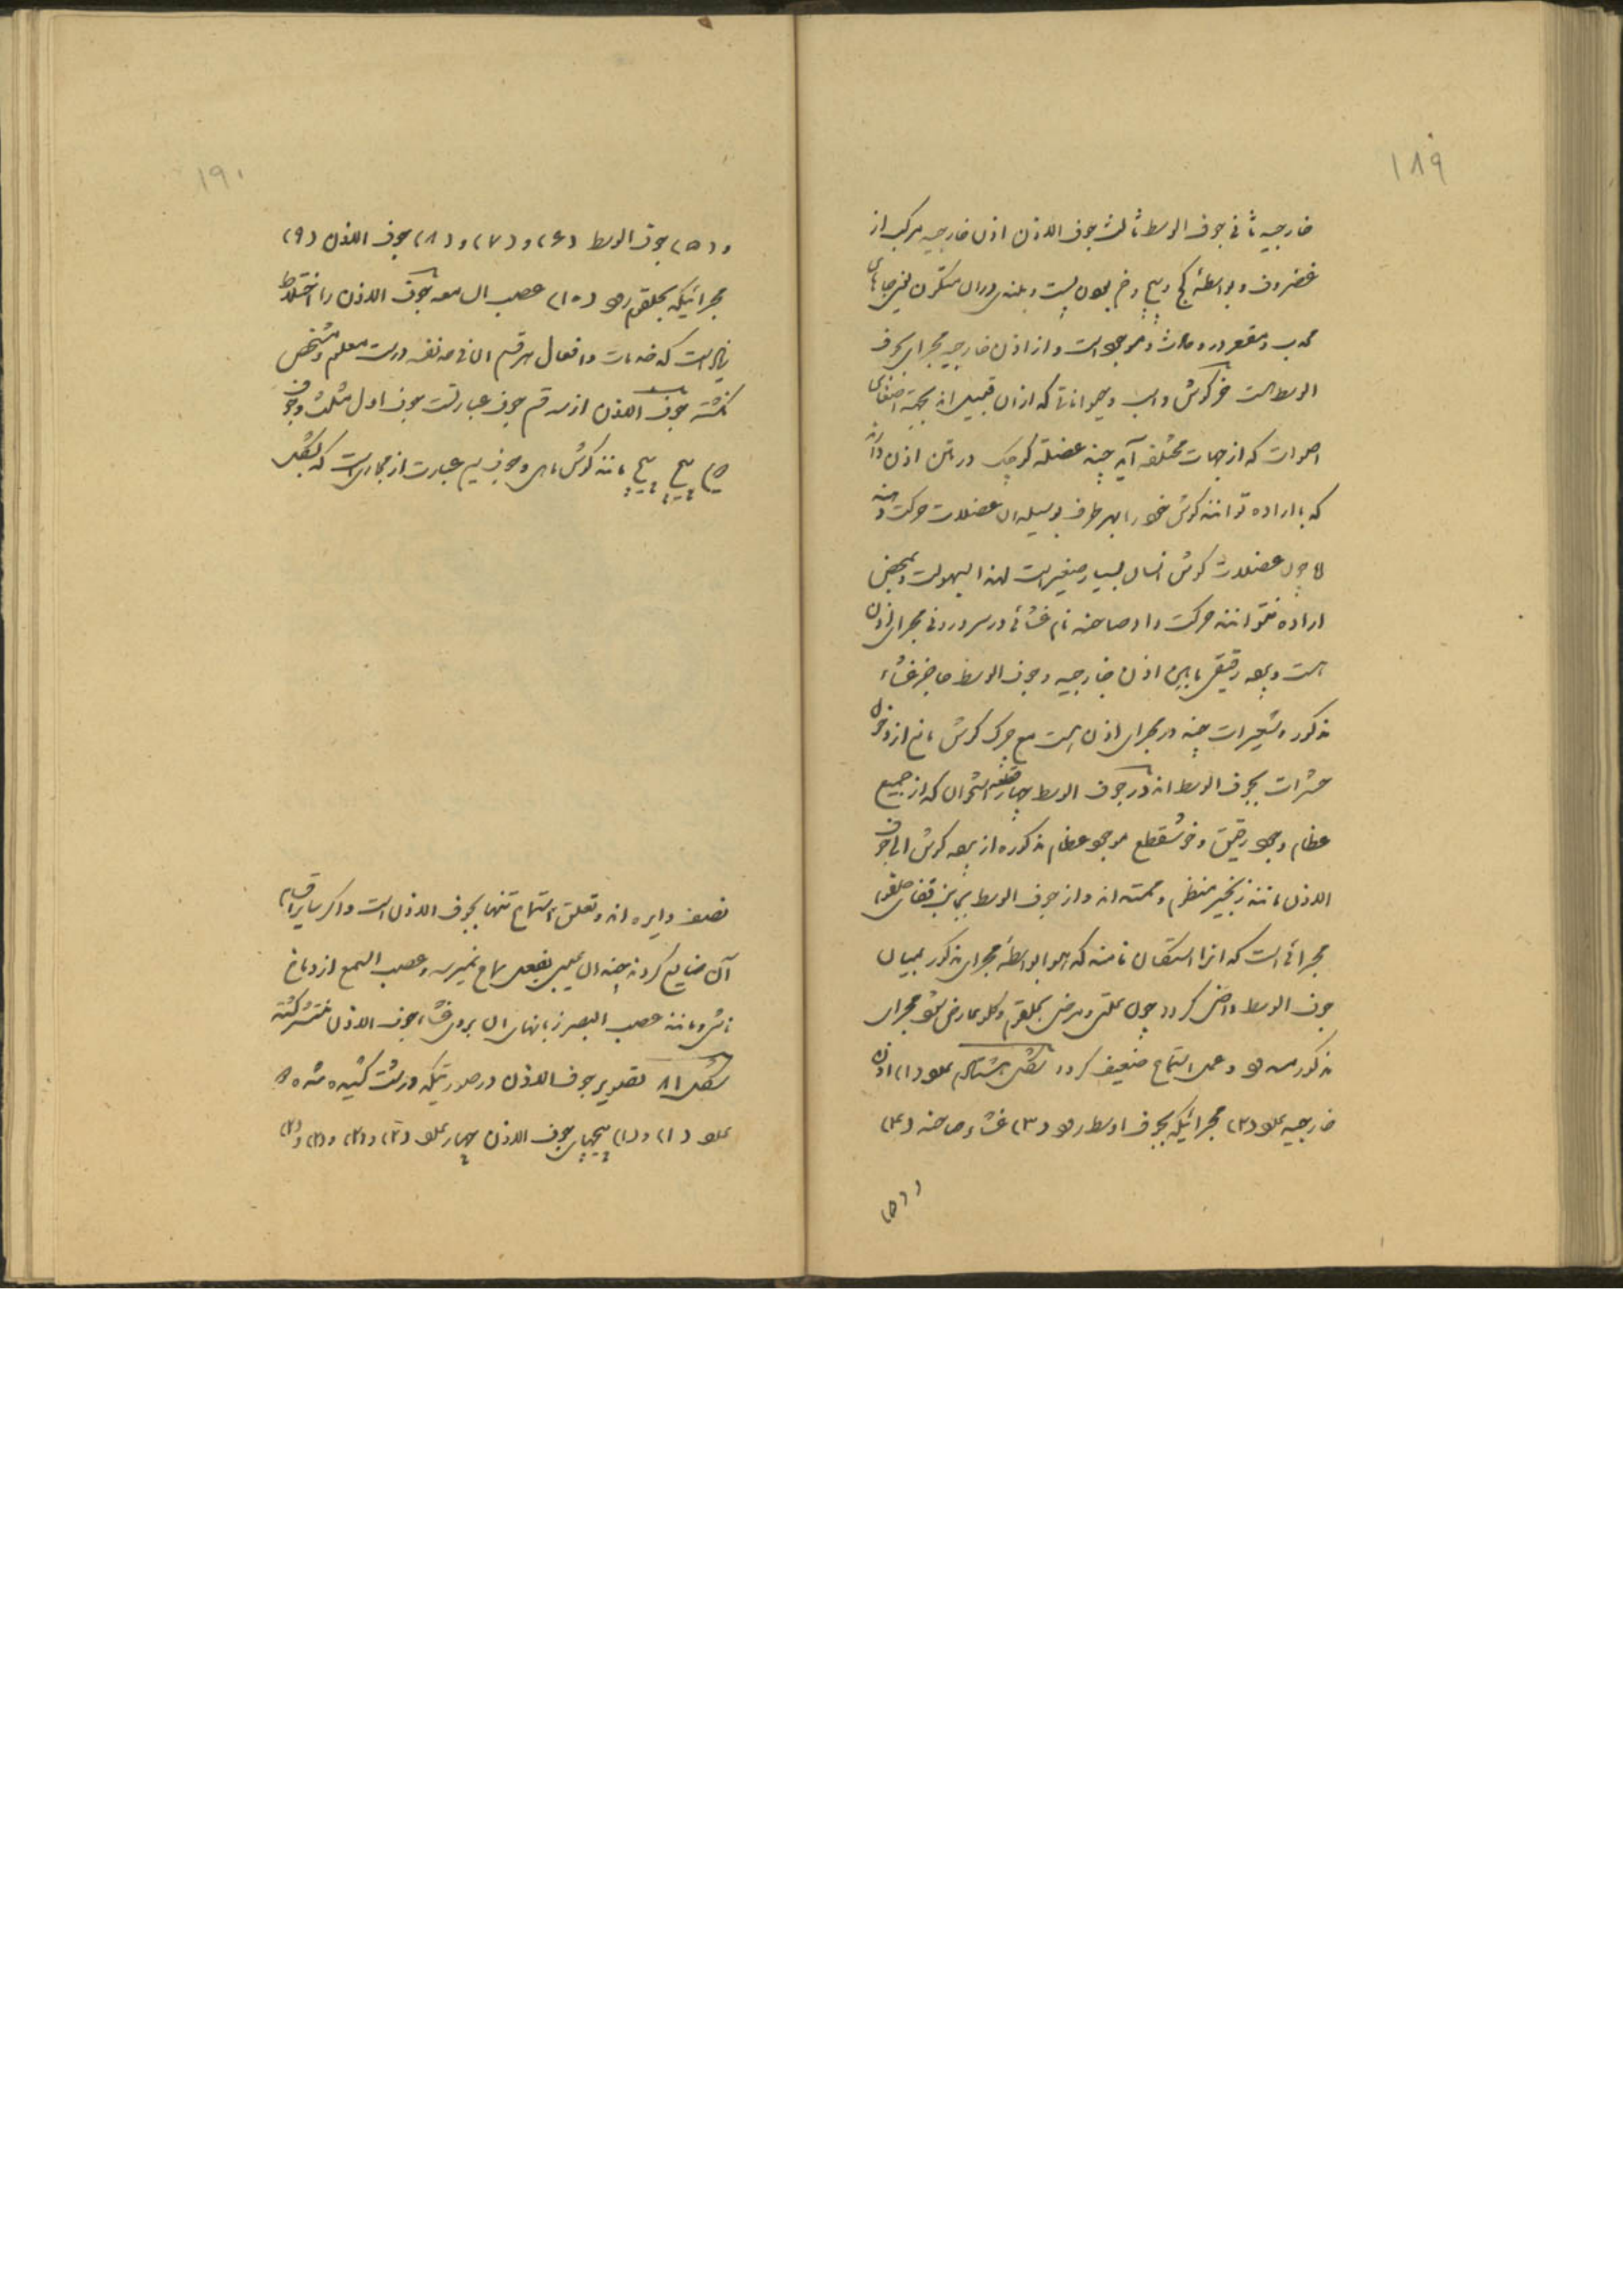 ۱۸۹
خارجیه ثانی جوف الوسط ثالث جوف الاذن اذن خارجیه مرکب از
غضروف و بواسطهٔ کج و پیچ و خم بودن پست و بلندی در ان متکون یعنی جاهای
محدب و مقعر در و حادث و موجود است و از اذن خارجیه مجرای بجوف
الوسط است خرگوش و اسب و حیواناتی که ازان قبیل اند بجهة اصغای
اصوات که از جهات مختلفه آید چند عضلهٔ کوچک در بتن اذن دارند
که باراده توانند گوش خود را بهر طرف بوسیله ان عضلات حرکت دهند
اما چون عضلات گوش انسان بسیار صغیر است لهذا بسهولت و بمحض
اراده نتوانند حرکت داد صماخه نام غشائی در سر درونی مجرای اذن
است و پرده رقیقی مابین اذن خارجیه و جوف الوسط حاجز غشاء
مذکور و شعیرات چند در مجرای اذن است مع چرک گوش مانع از دخول
حشرات بجوف الوسط اند در جوف الوسط چهار قطعه استخوان که از جمیع
عظام وجود رقیق و خوشقطع موجود عظام مذکوره از پرده گوش الی جوف
الاذن مانند زنجیر منظم و ممتد اند و از جوف الوسط نیز بقفای حلقوم
مجرائی است که انرا استقان نامند که هوا بواسطهٔ مجرای مذکور بمیان
جوف الوسط داخل کردد چون علتی و مرضی بحلقوم و کلو عارض شود مجرای
مذکور سد شود و عمل استماع ضعیف کردد شکل هشتادم عدد (۱) اذن
خارجیه عدد (۲) مجرائیکه بجوف اوسط رود (۳) غشاء صماخه (۴)
و (۵)
۱۹۰
و (۵) جوف الوسط (۶) و (۷) و (۸) جوف الاذن (۹)
مجرائیکه بحلقوم رود (۱۰) عصب السمعه جوف الاذن را اختلاط
زیاد است که خدمات و افعال هر قسم ان فی حد نفسه درست معلوم و مشخص
نکشته جوف الاذن از سه قسم جوف عبارتست جوف اول مثلث و جوف
دویم پیچ پیچ مانند گوش ماهی و جوف سیم عبارت از مجاری است که بشکل
نصف دایره اند و تعلق استماع تنها بجوف الاذن است و اکر سایر اقسام
آن ضایع کردند چندان عیبی بفعل سماع نمیرسد و عصب السمع از دماغ
ناشی و مانند عصب البصر زبانهای ان بر روی غشاء جوف الاذن منتشر کشته
شکل ۸۱ تصویر جوف الاذن در صورتیکه درشت کشیده شده
عدد (۱) و (۱) پیچهای جوف الاذن چهار عدد (۲) و (۲) و (۲) و (۲)